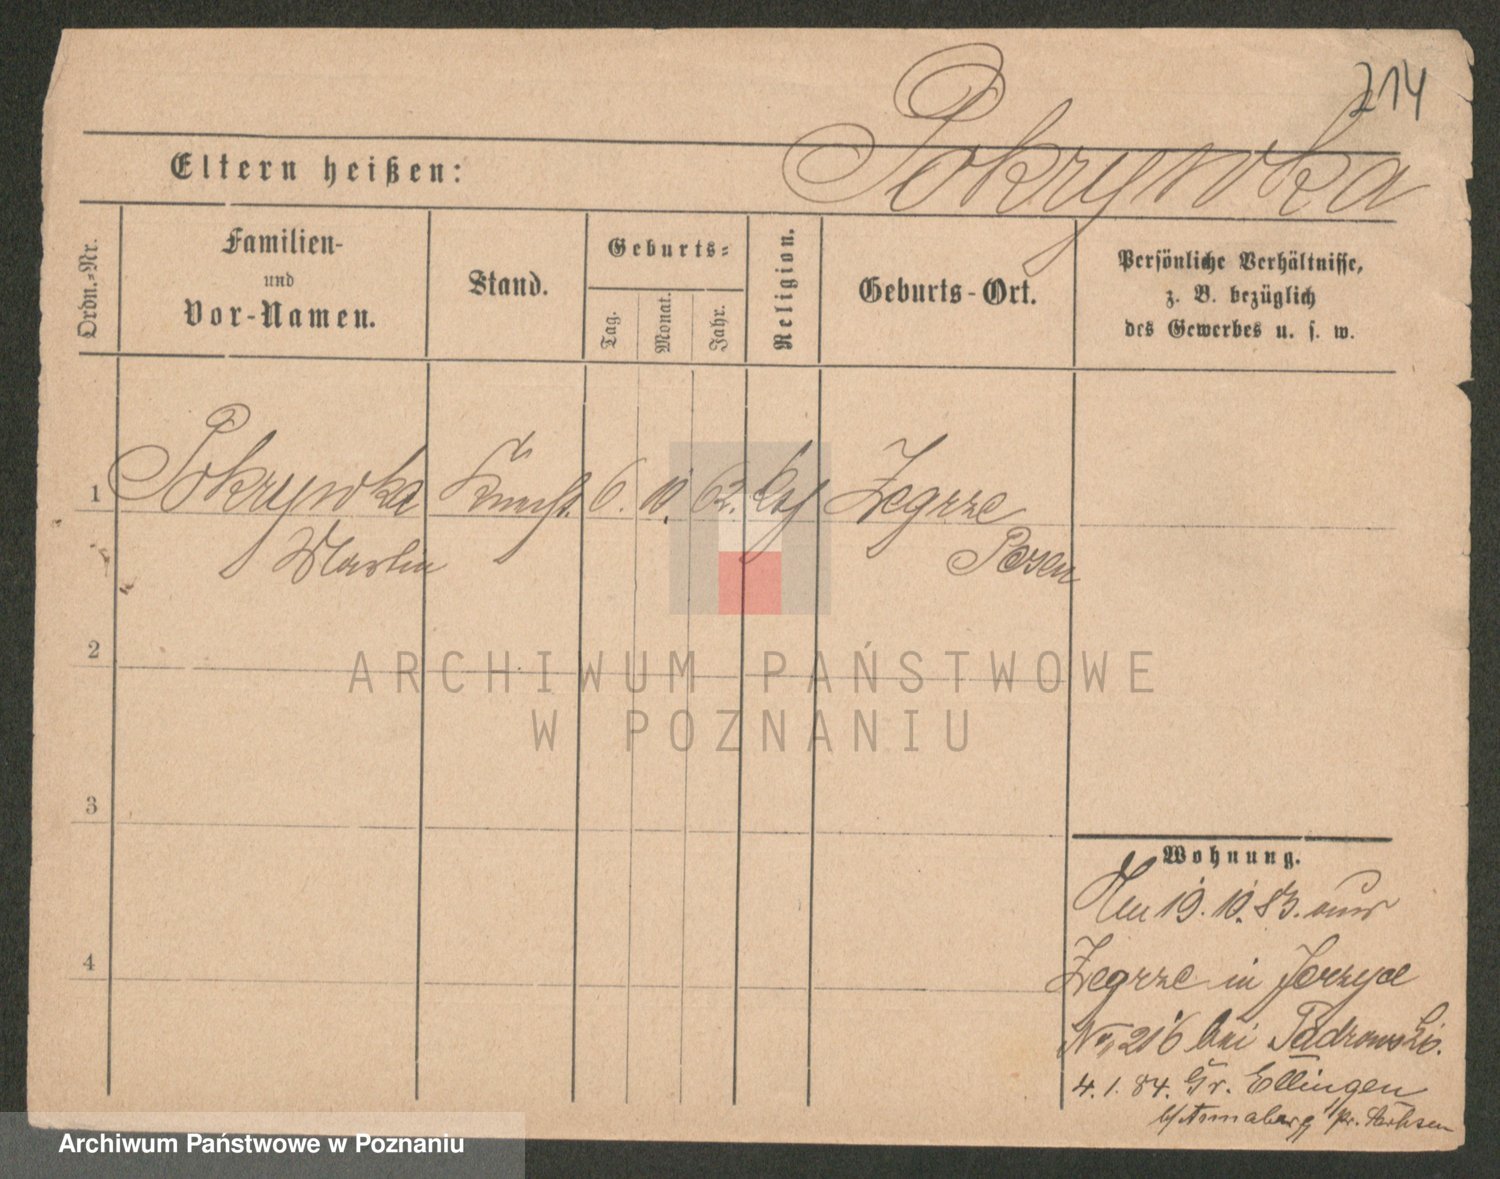 214
Pokrywka
Eltern heißen:
Ordn.-Nr.
Familien-
und
Vor-Namen.
Stand.
Geburts-
Tag.
Monat.
Jahr.
Religion.
Geburts-Ort.
Persönliche Verhältnisse,
z. B. bezüglich
des Gewerbes u. s. w.
1 Pokrywka Knecht 6. 10. 62. kth Zegrze
Martin Posen
2
ARCHIWUM PAŃSTWOWE
W POZNANIU
3
Wohnung.
19. 10. 83. aus
4
Zegrze in Jerzyce
No 216 bei
4. 1. 84. Gr.
Archiwum Państwowe w Poznaniu